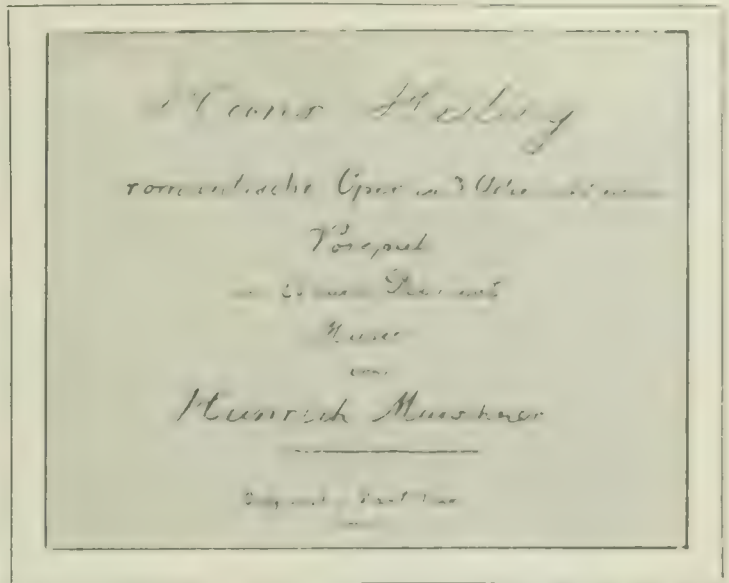 Hans Heiling
romantische Oper in 3 Akten
Vorspiel
von Eduard Devrient
Musik
von
Heinrich Marschner
Original Partitur